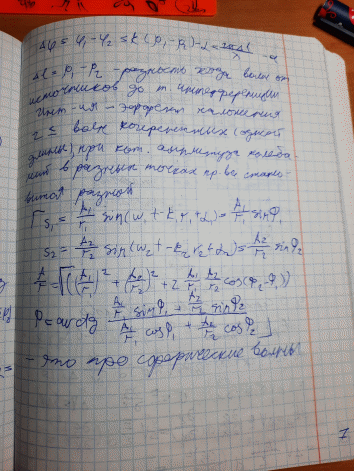 Δφ = φ₁ - φ₂ = k(ρ₁ - ρ₂) - α = 2πΔl/λ - α
Δl = ρ₁ - ρ₂ - разность хода волн от
источников до т интерференции
Инт-ия - эффект наложения
2 ≤ волн когерентных (одной
длины), при кот. амплитуда колеба-
ний в разных точках пр-ва стано-
вится разной
Γ S₁ = A₁/r₁ sin(ω₁t - k₁r₁ + α₁) = A₁/r₁ sinΦ₁
S₂ = A₂/r₂ sin(ω₂t - k₂r₂ + α₂) = A₂/r₂ sinΦ₂
A/r = √((A₁/r₁)² + (A₂/r₂)² + 2 A₁/r₁ A₂/r₂ cos(Φ₂ - Φ₁))
φ = arctg (A₁/r₁ sinΦ₁ + A₂/r₂ sinΦ₂) / (A₁/r₁ cosΦ₁ + A₂/r₂ cosΦ₂) ⌋
- это про сферические волны